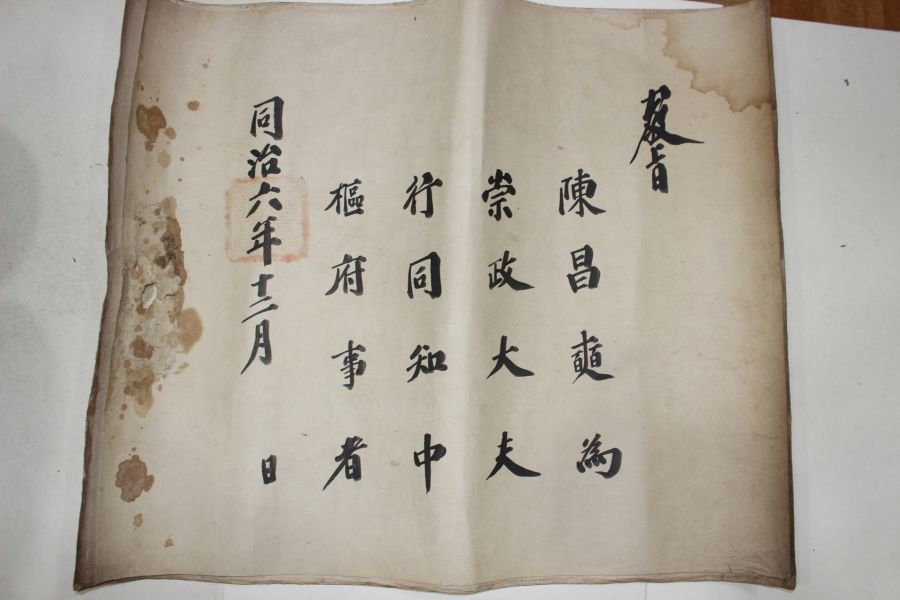 教旨
陳昌奭為
崇政大夫
行同知中
樞府事者
同治六年十二月 日